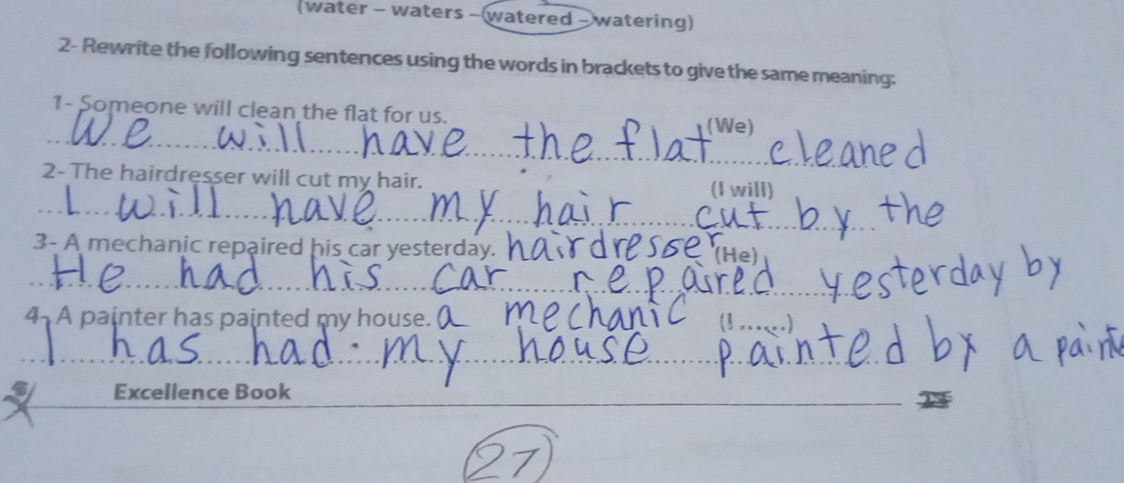 (water – waters – watered – watering)
2- Rewrite the following sentences using the words in brackets to give the same meaning:
1- Someone will clean the flat for us. (We)
We will have the flat cleaned
2- The hairdresser will cut my hair. (I will)
I will have my hair cut by the
hairdresser
3- A mechanic repaired his car yesterday. (He)
He had his car repaired yesterday by
a mechanic
4- A painter has painted my house. (I ......)
I has had my house painted by a painte
Excellence Book
27